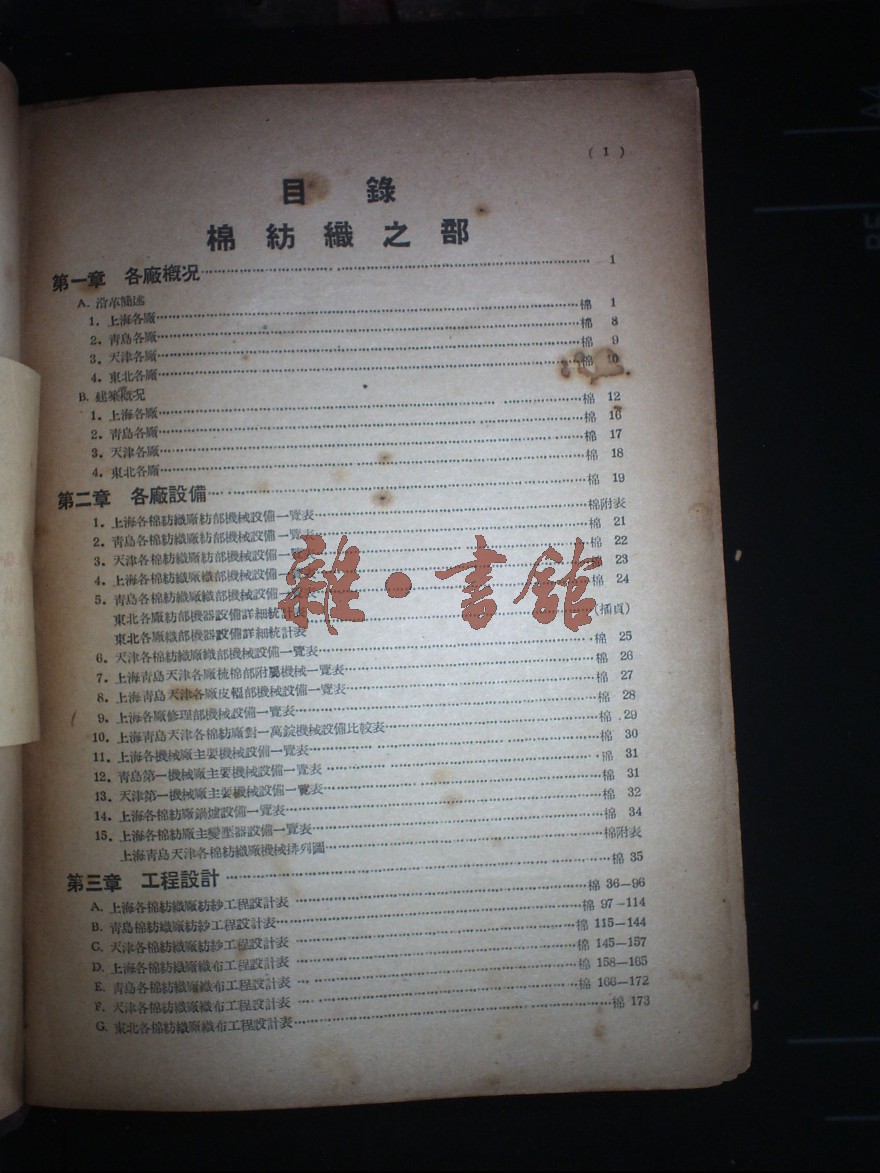 ( 1 )
目 錄
棉 紡 織 之 部
第一章 各廠概况……1
A. 沿革簡述
1. 上海各廠……棉 1
2. 靑島各廠……棉 8
3. 天津各廠……棉 9
4. 東北各廠……棉 10
B. 建築概况
1. 上海各廠……棉 12
2. 靑島各廠……棉 16
3. 天津各廠……棉 17
4. 東北各廠……棉 18
第二章 各廠設備……棉 19
1. 上海各棉紡織廠紡部機械設備一覽表……棉附表
2. 靑島各棉紡織廠紡部機械設備一覽表……棉 21
3. 天津各棉紡織廠紡部機械設備一覽表……棉 22
4. 上海各棉紡織廠織部機械設備一覽表……棉 23
5. 靑島各棉紡織廠織部機械設備一覽表……棉 24
東北各廠紡部機器設備詳細統計表……(插頁)
東北各廠織部機器設備詳細統計表
6. 天津各棉紡織廠織部機械設備一覽表……棉 25
7. 上海靑島天津各廠梳棉部附屬機械一覽表……棉 26
8. 上海靑島天津各廠皮輥部機械設備一覽表……棉 27
9. 上海各廠修理部機械設備一覽表……棉 28
10. 上海靑島天津各棉紡廠對一萬錠機械設備比較表……棉 29
11. 上海各機械廠主要機械設備一覽表……棉 30
12. 靑島第一機械廠主要機械設備一覽表……棉 31
13. 天津第一機械廠主要機械設備一覽表……棉 31
14. 上海各棉紡廠鍋爐設備一覽表……棉 32
15. 上海各棉紡廠主變壓器設備一覽表……棉 34
上海靑島天津各棉紡織廠機械排列圖……棉附表
第三章 工程設計……棉 35
A. 上海各棉紡織廠紡紗工程設計表……棉 36—96
B. 靑島棉紡織廠紡紗工程設計表……棉 97—114
C. 天津各棉紡織廠紡紗工程設計表……棉 115—144
D. 上海各棉紡織廠織布工程設計表……棉 145—157
E. 靑島各棉紡織廠織布工程設計表……棉 158—165
F. 天津各棉紡織廠織布工程設計表……棉 166—172
G. 東北各棉紡織廠織布工程設計表……棉 173
雜·書館
A4